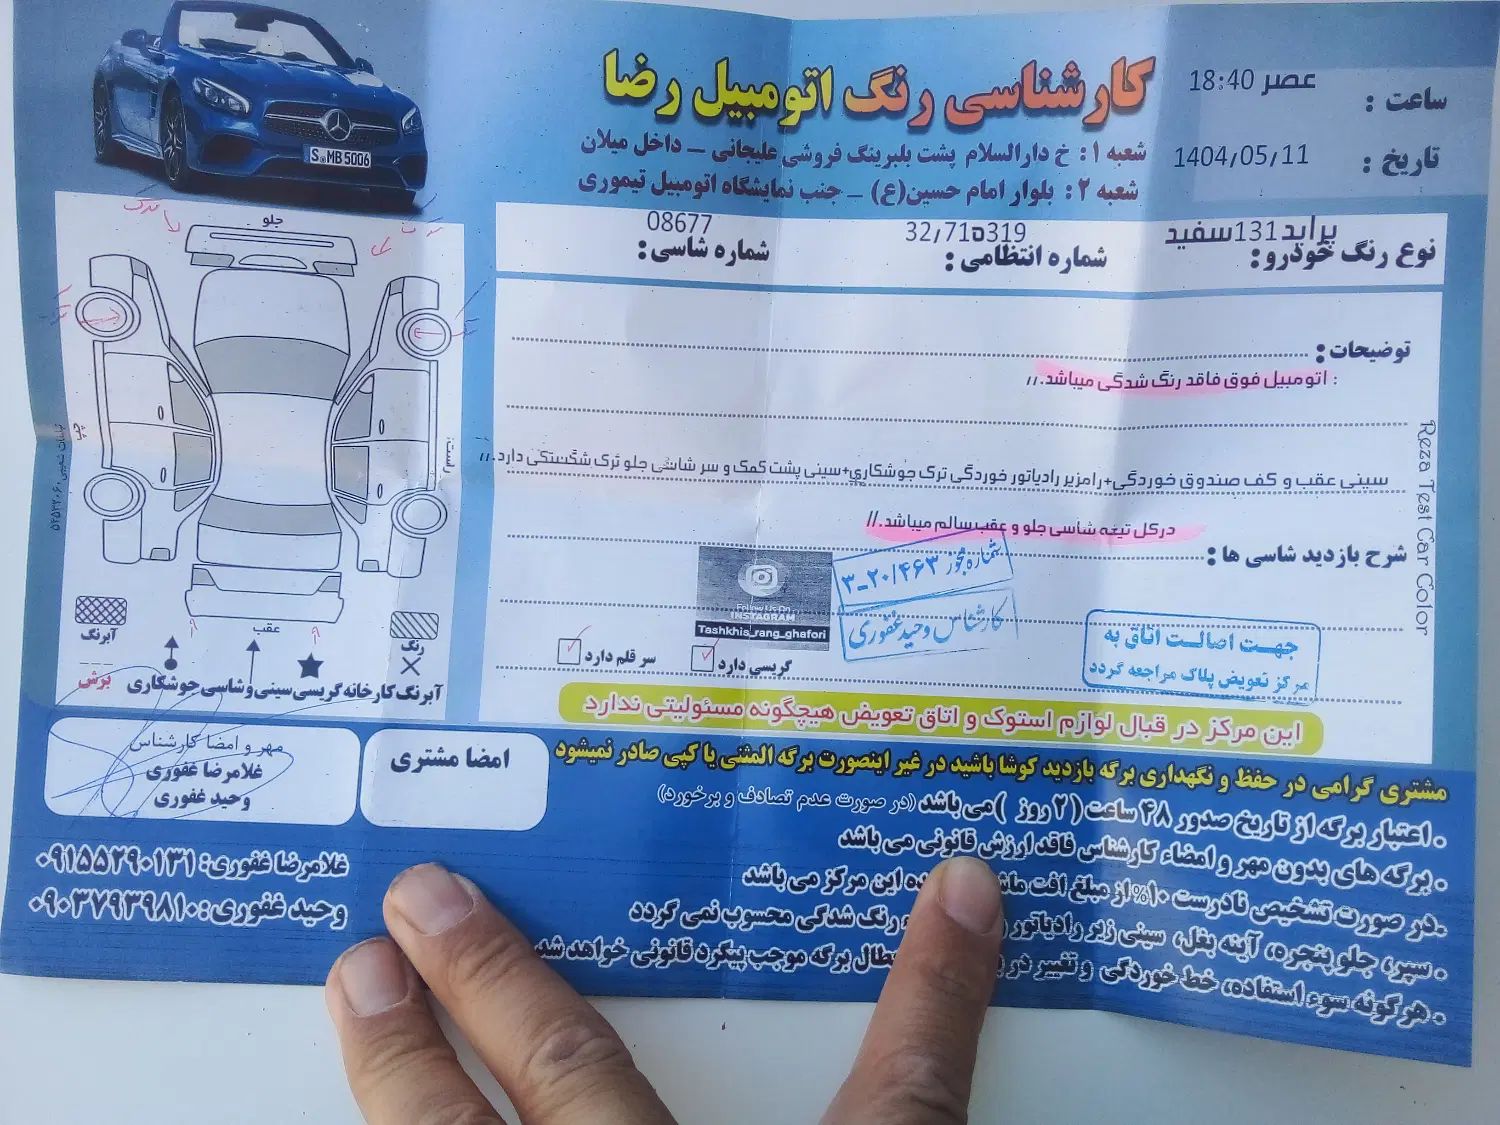 کارشناسی رنگ اتومبیل رضا
شعبه ۱: خ دارالسلام پشت بلبرینگ فروشی علیجانی _ داخل میلان
شعبه ۲: بلوار امام حسین(ع) _ جنب نمایشگاه اتومبیل تیموری
ساعت : 18:40 عصر
تاریخ : 1404/05/11
S MB 5006
نوع رنگ خودرو: پراید131سفید
شماره انتظامی : 32/71ه319
شماره شاسی: 08677
توضیحات:
: اتومبیل فوق فاقد رنگ شدگی میباشد.//
سینی عقب و کف صندوق خوردگی+رامزیر رادیاتور خوردگی ترک جوشکاری+سینی پشت کمک و سر شاسی جلو ترک شگستکی دارد.//
درکل تیغه شاسی جلو و عقب سالم میباشد.//
شرح بازدید شاسی ها :
شماره مجوز ۲۰/۴۶۳_۳
کارشناس وحید غفوری
Follow Us On
INSTAGRAM
Tashkhis_rang_ghafori
جهت اصالت اتاق به
مرکز تعویض پلاک مراجعه گردد
گریسی دارد
سر قلم دارد
این مرکز در قبال لوازم استوک و اتاق تعویض هیچگونه مسئولیتی ندارد
Reza Test Car Color
جلو
چپ
راست
عقب
آبرنگ
رنگ
برش
جوشکاری
سینی وشاسی
گریسی
آبرنگ کارخانه
مهر و امضا کارشناس
غلامرضا غفوری
وحید غفوری
امضا مشتری
مشتری گرامی در حفظ و نگهداری برگه بازدید کوشا باشید در غیر اینصورت برگه المثنی یا کپی صادر نمیشود
• اعتبار برگه از تاریخ صدور ۴۸ ساعت (۲ روز )می باشد (در صورت عدم تصادف و برخورد)
• برگه های بدون مهر و امضاء کارشناس فاقد ارزش قانونی می باشد
•در صورت تشخیص نادرست ۱۰% از مبلغ افت این مرکز می باشد
• سپر، جلو پنجره، آینه بغل، سینی زیر رادیاتور رنگ شدگی محسوب نمی گردد
• هرگونه سوء استفاده، خط خوردگی و تغییر در برگه موجب پیگرد قانونی خواهد شد
غلامرضا غفوری: ۰۹۱۵۵۲۹۰۱۳۱
وحید غفوری: ۰۹۰۳۷۹۳۹۸۱۰